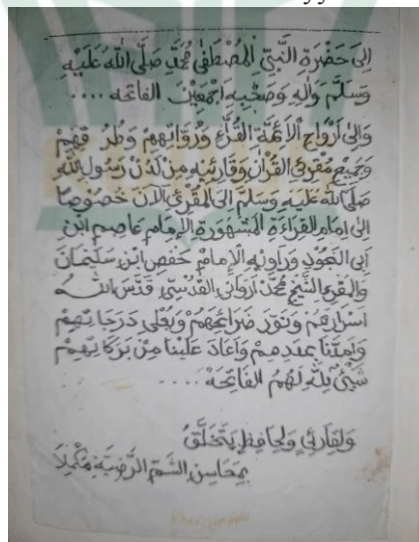 إِلَى حَضْرَةِ النَّبِيِّ الْمُصْطَفَى مُحَمَّدٍ صَلَّى اللهُ عَلَيْهِ
وَسَلَّمَ وَآلِهِ وَصَحْبِهِ أَجْمَعِيْنَ الفَاتِحَه ....
وَإِلَى أَرْوَاحِ الْأَئِمَّةِ القُرَّاءِ وَرُوَاتِهِمْ وَطُرُقِهِمْ
وَجَمِيْعِ مُقْرِئِ القُرْآنِ وَقَارِئِيْهِ مِنْ لَدُنْ رَسُوْلِ اللهِ
صَلَّى اللهُ عَلَيْهِ وَسَلَّمَ إِلَى المُقْرِئِ الآنَ خُصُوْصًا
إِلَى إِمَامِ القِرَاءَةِ المَشْهُوْرَةِ الإِمَامِ عَاصِمِ ابْنِ
أَبِى النَّجُوْدِ وَرَاوِيْهِ الإِمَامِ حَفْصِ ابْنِ سُلَيْمَانَ
وَالمُقْرِئِ الشَّيْخِ مُحَمَّدْ أَرْوَانِى القُدْسِيِّ قَدَّسَ اللهُ
أَسْرَارَهُمْ وَنَوَّرَ ضَرَائِحَهُمْ وَيُعْلِى دَرَجَاتِهِمْ
وَأَمَدَّنَا بِمَدَدِهِمْ وَأَعَادَ عَلَيْنَا مِنْ بَرَكَاتِهِمْ
شَيْئٌ لِلّٰهِ لَهُمُ الفَاتِحَهْ ....
وَلِقَارِئٍ وَلِحَافِظٍ يَتَخَلَّقُ
بِمَحَاسِنِ الشِّيَمِ الرَّضِيَّةِ مُكَمِّلاً